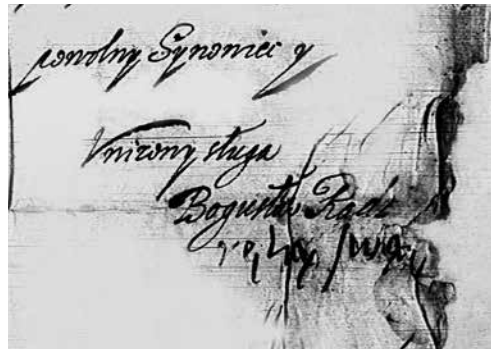 powolny Synowiec y
Vnizony sługa
Bogusław Radz